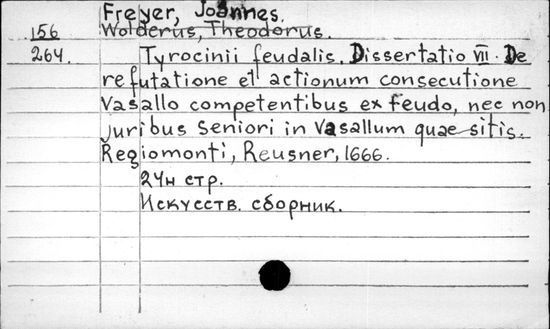 Freyer, Joannes.
156 Wolderus, Theodorus.
264. Tyrocinii feudalis. Dissertatio VII. De
refutatione et actionum consecutione
vasallo competentibus ex feudo, nec non
juribus Seniori in vasallum quaesitis.
Regiomonti, Reusner, 1666.
24н стр.
Искусств. сборник.